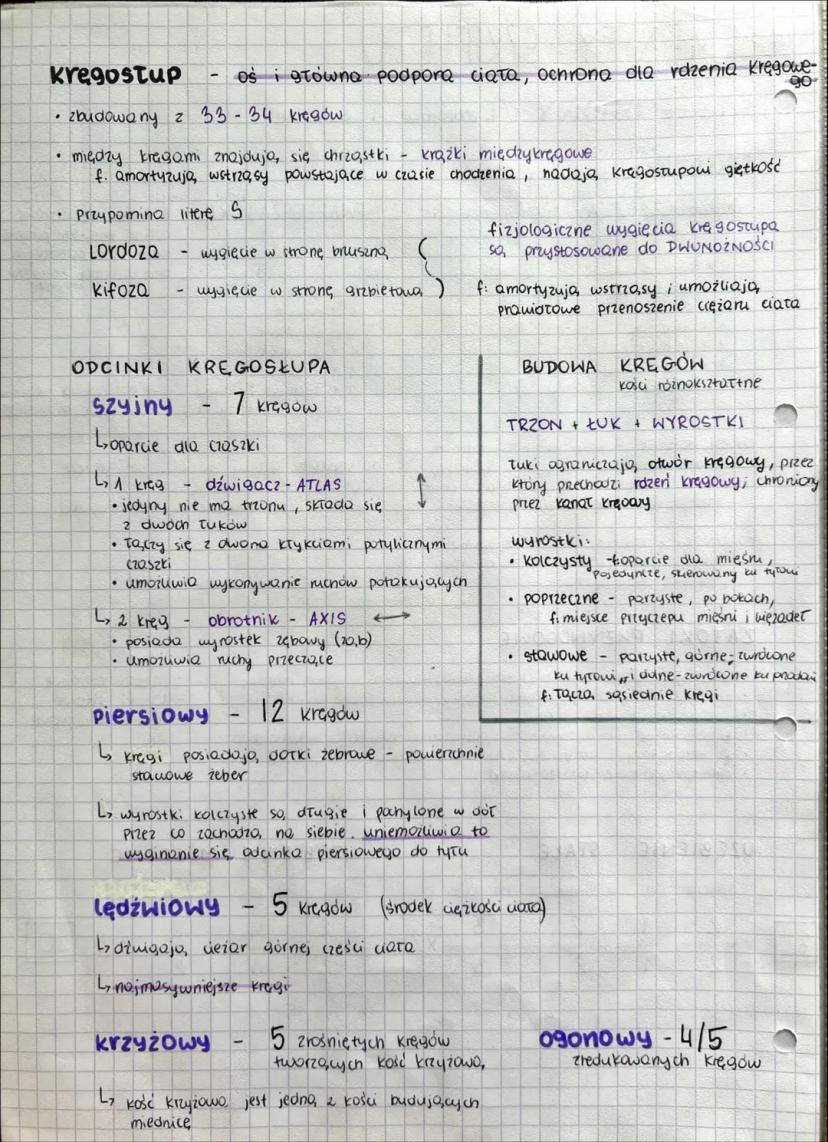 kręgosłup - oś i główna podpora ciała, ochrona dla rdzenia kręgowe-
go
• zbudowany z 33-34 kręgów
• między kręgami znajdują się chrząstki - krążki międzykręgowe
f. amortyzują wstrząsy powstające w czasie chodzenia, nadają kręgosłupowi giętkość
• przypomina literę S
LORDOZA - wygięcie w stronę brzuszną (
kifoza - wygięcie w stronę grzbietową )
fizjologiczne wygięcia kręgosłupa
są przystosowane do DWUNOŻNOŚCI
f: amortyzują wstrząsy i umożliają
prawidłowe przenoszenie ciężaru ciała
ODCINKI KRĘGOSŁUPA
szyjny - 7 kręgów
↳ oparcie dla czaszki
↳ 1 kręg - dźwigacz - ATLAS ↕
• jedyny nie ma trzonu, składa się
z dwóch łuków
• łączy się z dwoma kłykciami potylicznymi
czaszki
• umożliwia wykonywanie ruchów potakujących
↳ 2 kręg - obrotnik - AXIS ↔
• posiada wyrostek zębowy (ząb)
• umożliwia ruchy przeczące
piersiowy - 12 kręgów
↳ kręgi posiadają dołki żebrowe - powierzchnie
stawowe żeber
↳ wyrostki kolczyste są długie i pochylone w dół
przez co zachodzą na siebie. uniemożliwia to
wyginanie się odcinka piersiowego do tyłu
lędźwiowy - 5 kręgów (środek ciężkości ciała)
↳ dźwigają ciężar górnej części ciała
↳ najmasywniejsze kręgi
krzyżowy - 5 zrośniętych kręgów
tworzących kość krzyżową
↳ kość krzyżowa jest jedną z kości budujących
miednicę
ogonowy - 4/5
zredukowanych kręgów
BUDOWA KRĘGÓW
kości różnokształtne
TRZON + ŁUK + WYROSTKI
łuki ograniczają otwór kręgowy, przez
który przechodzi rdzeń kręgowy; chroniony
przez kanał kręgowy
wyrostki:
• kolczysty - f: oparcie dla mięśni,
pojedyncze, skierowany ku tyłowi
• poprzeczne - parzyste, po bokach,
f: miejsce przyczepu mięśni i więzadeł
• stawowe - parzyste, górne-zwrócone
ku tyłowi i dolne-zwrócone ku przodowi
f: łączą sąsiednie kręgi